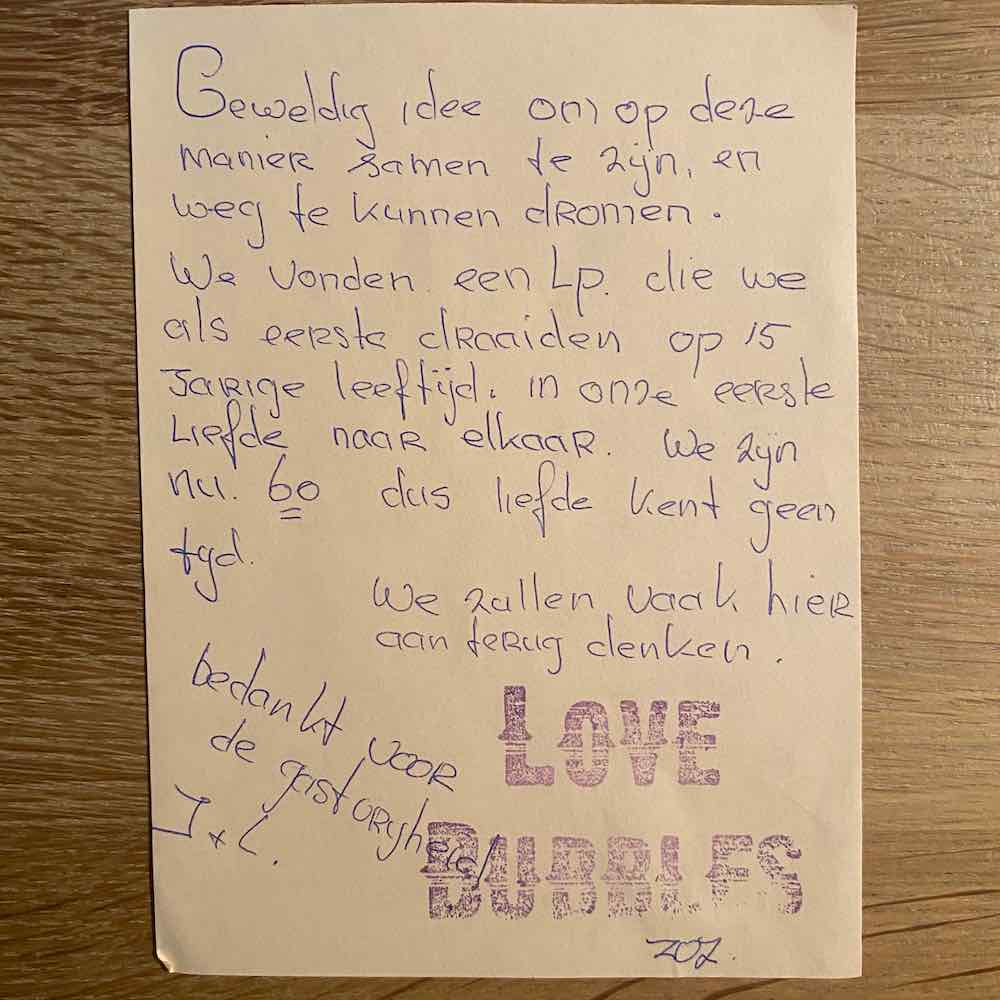 Geweldig idee om op deze
manier samen te zijn, en
weg te kunnen dromen.
We vonden een Lp. die we
als eerste draaiden op 15
Jarige leeftijd. in onze eerste
Liefde naar elkaar. We zijn
nu. 60 dus liefde kent geen
tyd.
We zullen vaak hier
aan terug denken.
bedankt voor
de gastvrijheid
J + L.
LOVE
BUBBLES
ZOZ.